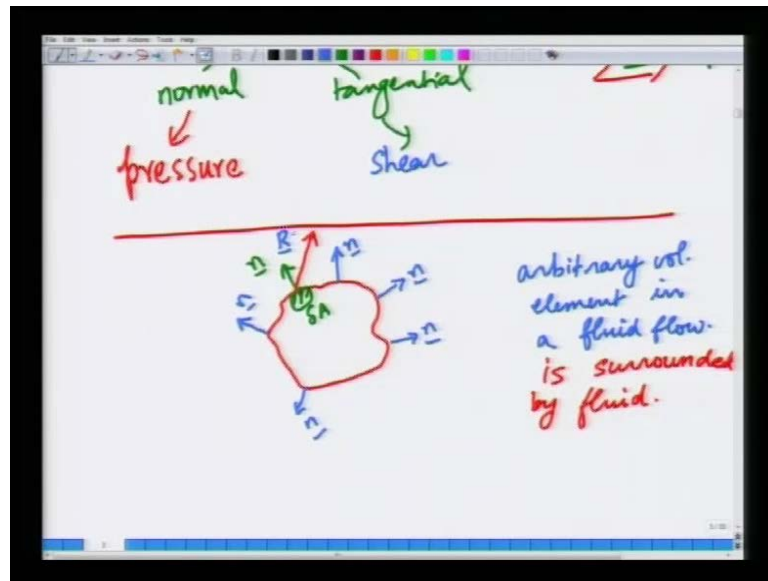 File Edit View Insert Actions Tools Help
normal
tangential
pressure
shear
R
n
n
n
n
n
n
δA
arbitrary vol.
element in
a fluid flow.
is surrounded
by fluid.